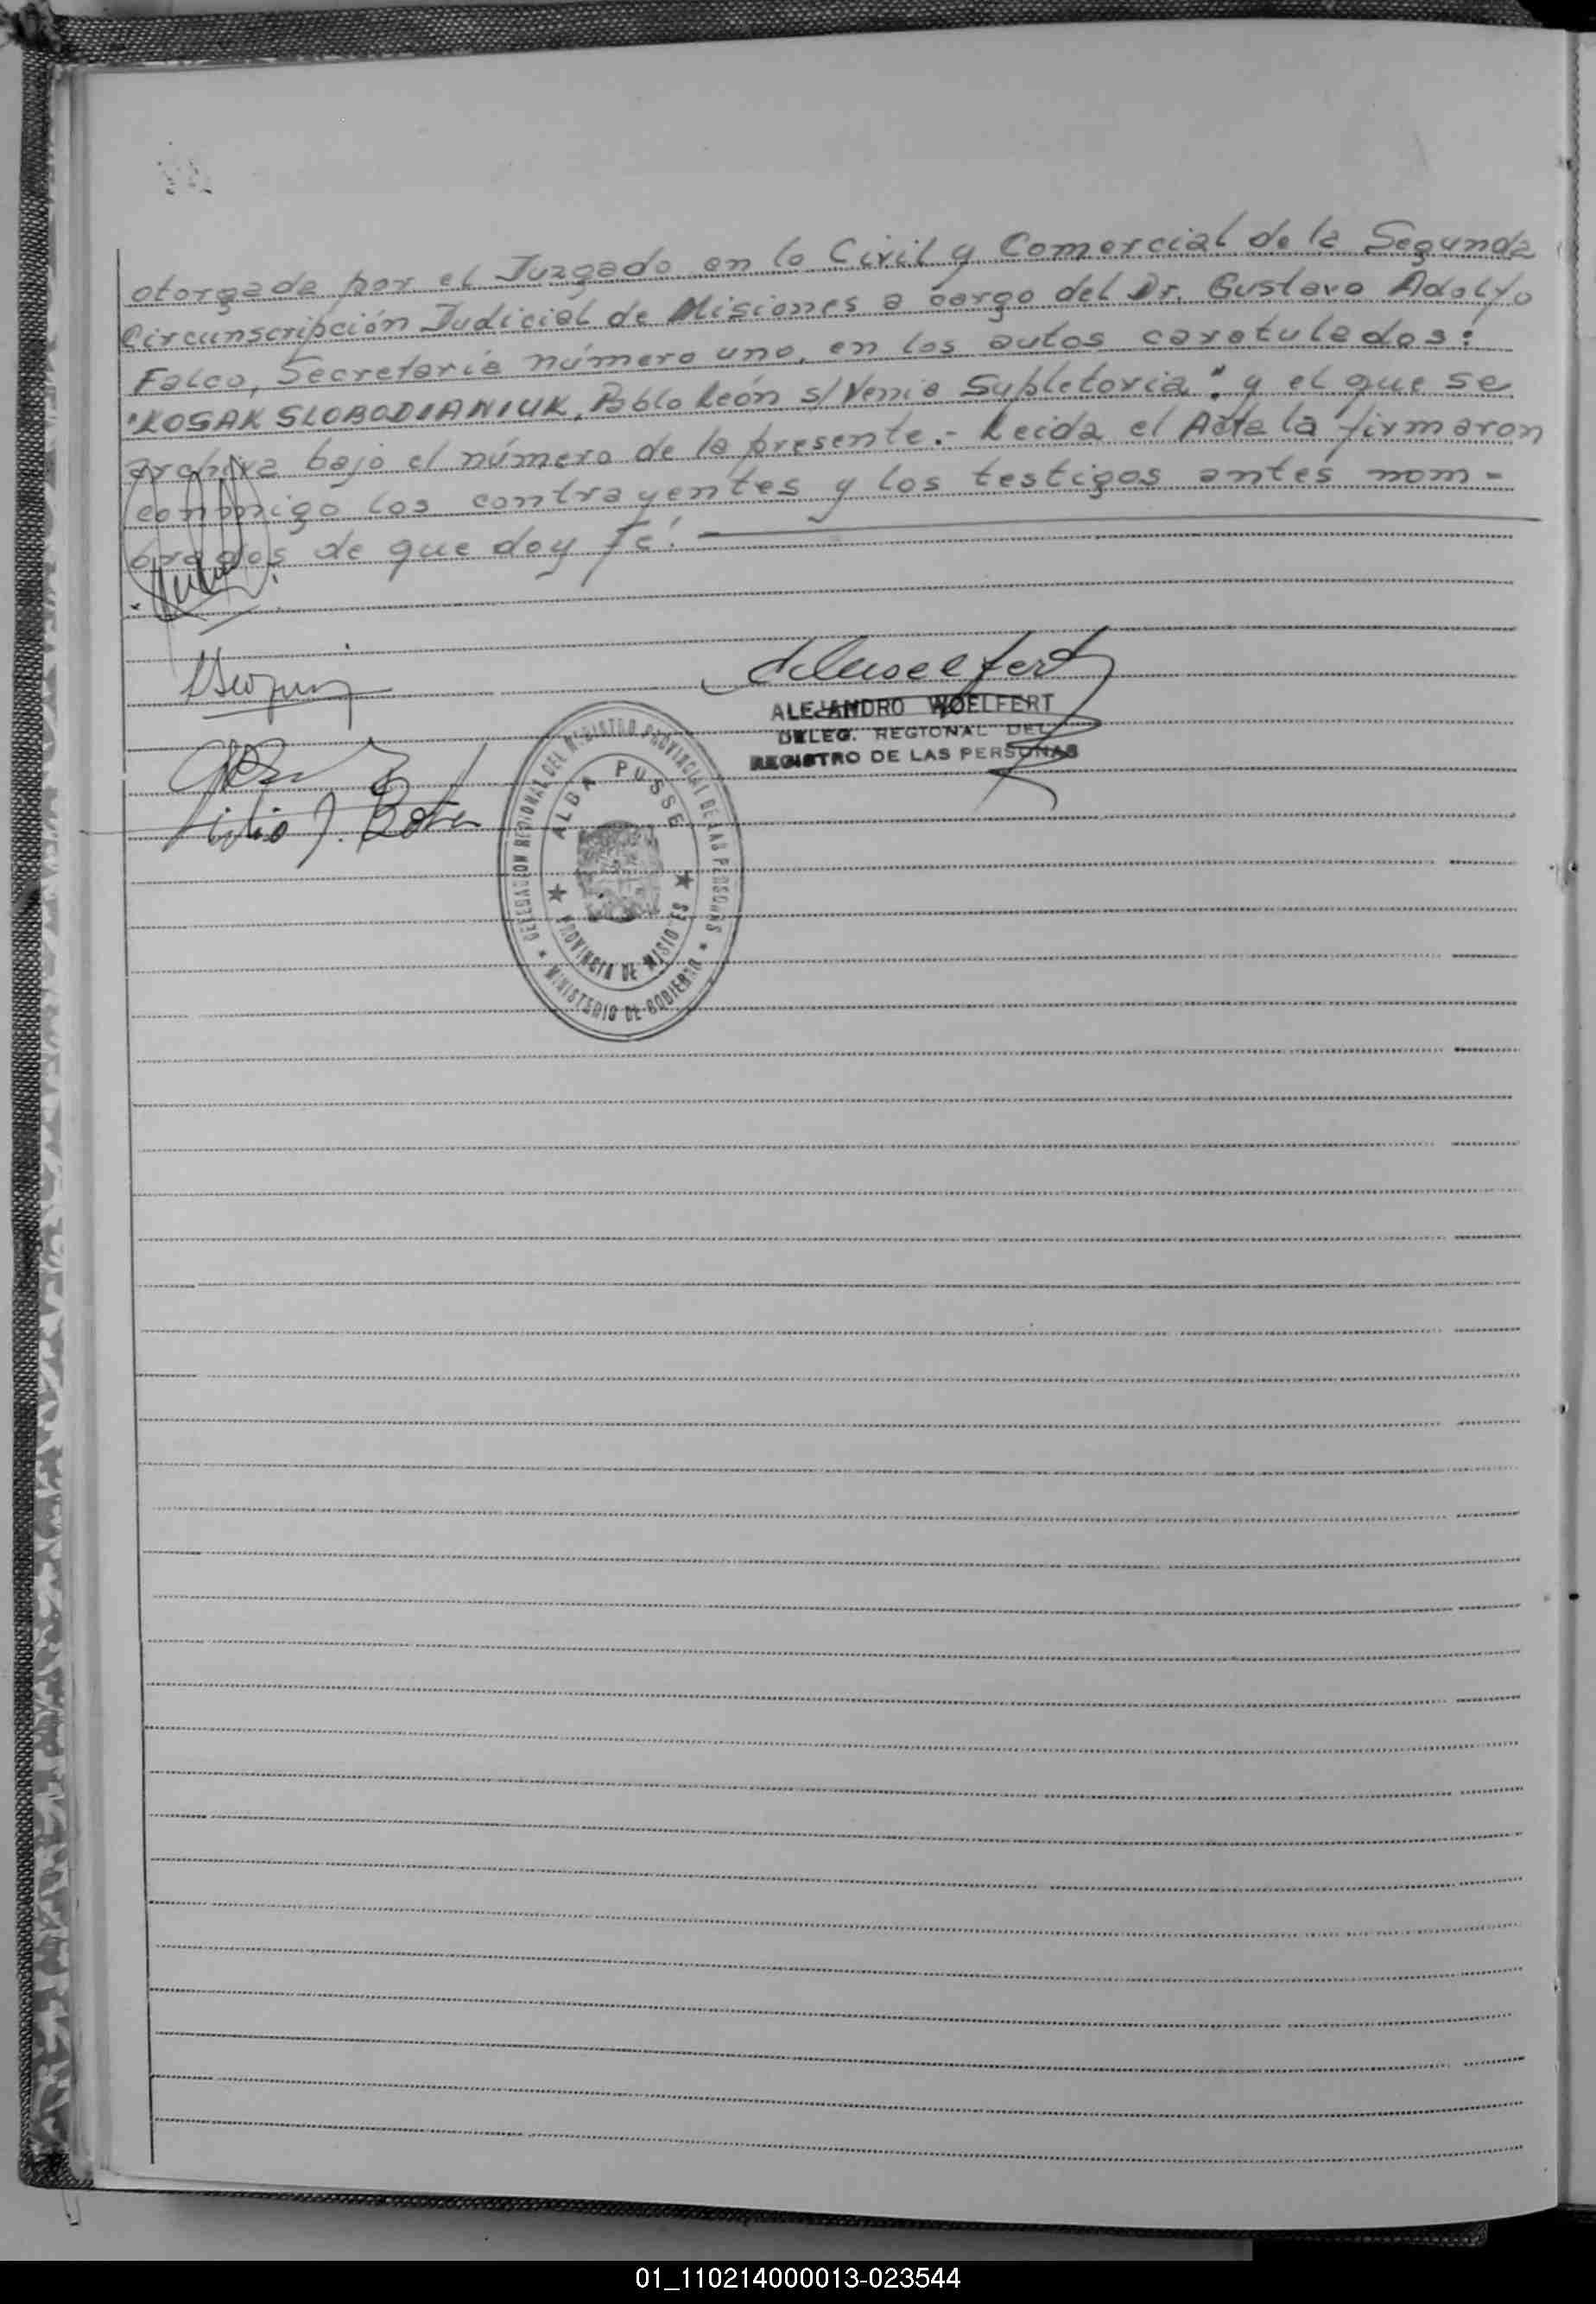 otorgada por el Juzgado en lo Civil y Comercial de la Segunda
Circunscripción Judicial de Misiones a cargo del Dr. Gustavo Adolfo
Falco, Secretaría número uno, en los autos caratulados:
"KOSAK SLOBODIANIUK, Pablo León s/ Venia Supletoria" y el que se
archiva bajo el número de la presente.- Leida el Acta la firmaron
conmigo los contrayentes y los testigos antes nom-
brados de que doy fé.
ALEJANDRO WOELFERT
DELEG. REGIONAL DEL
REGISTRO DE LAS PERSONAS
DELEGACION REGIONAL DEL REGISTRO PROVINCIAL DE LAS PERSONAS
ALBA PUSSE
PROVINCIA DE MISIONES
MINISTERIO DE GOBIERNO
01_110214000013-023544